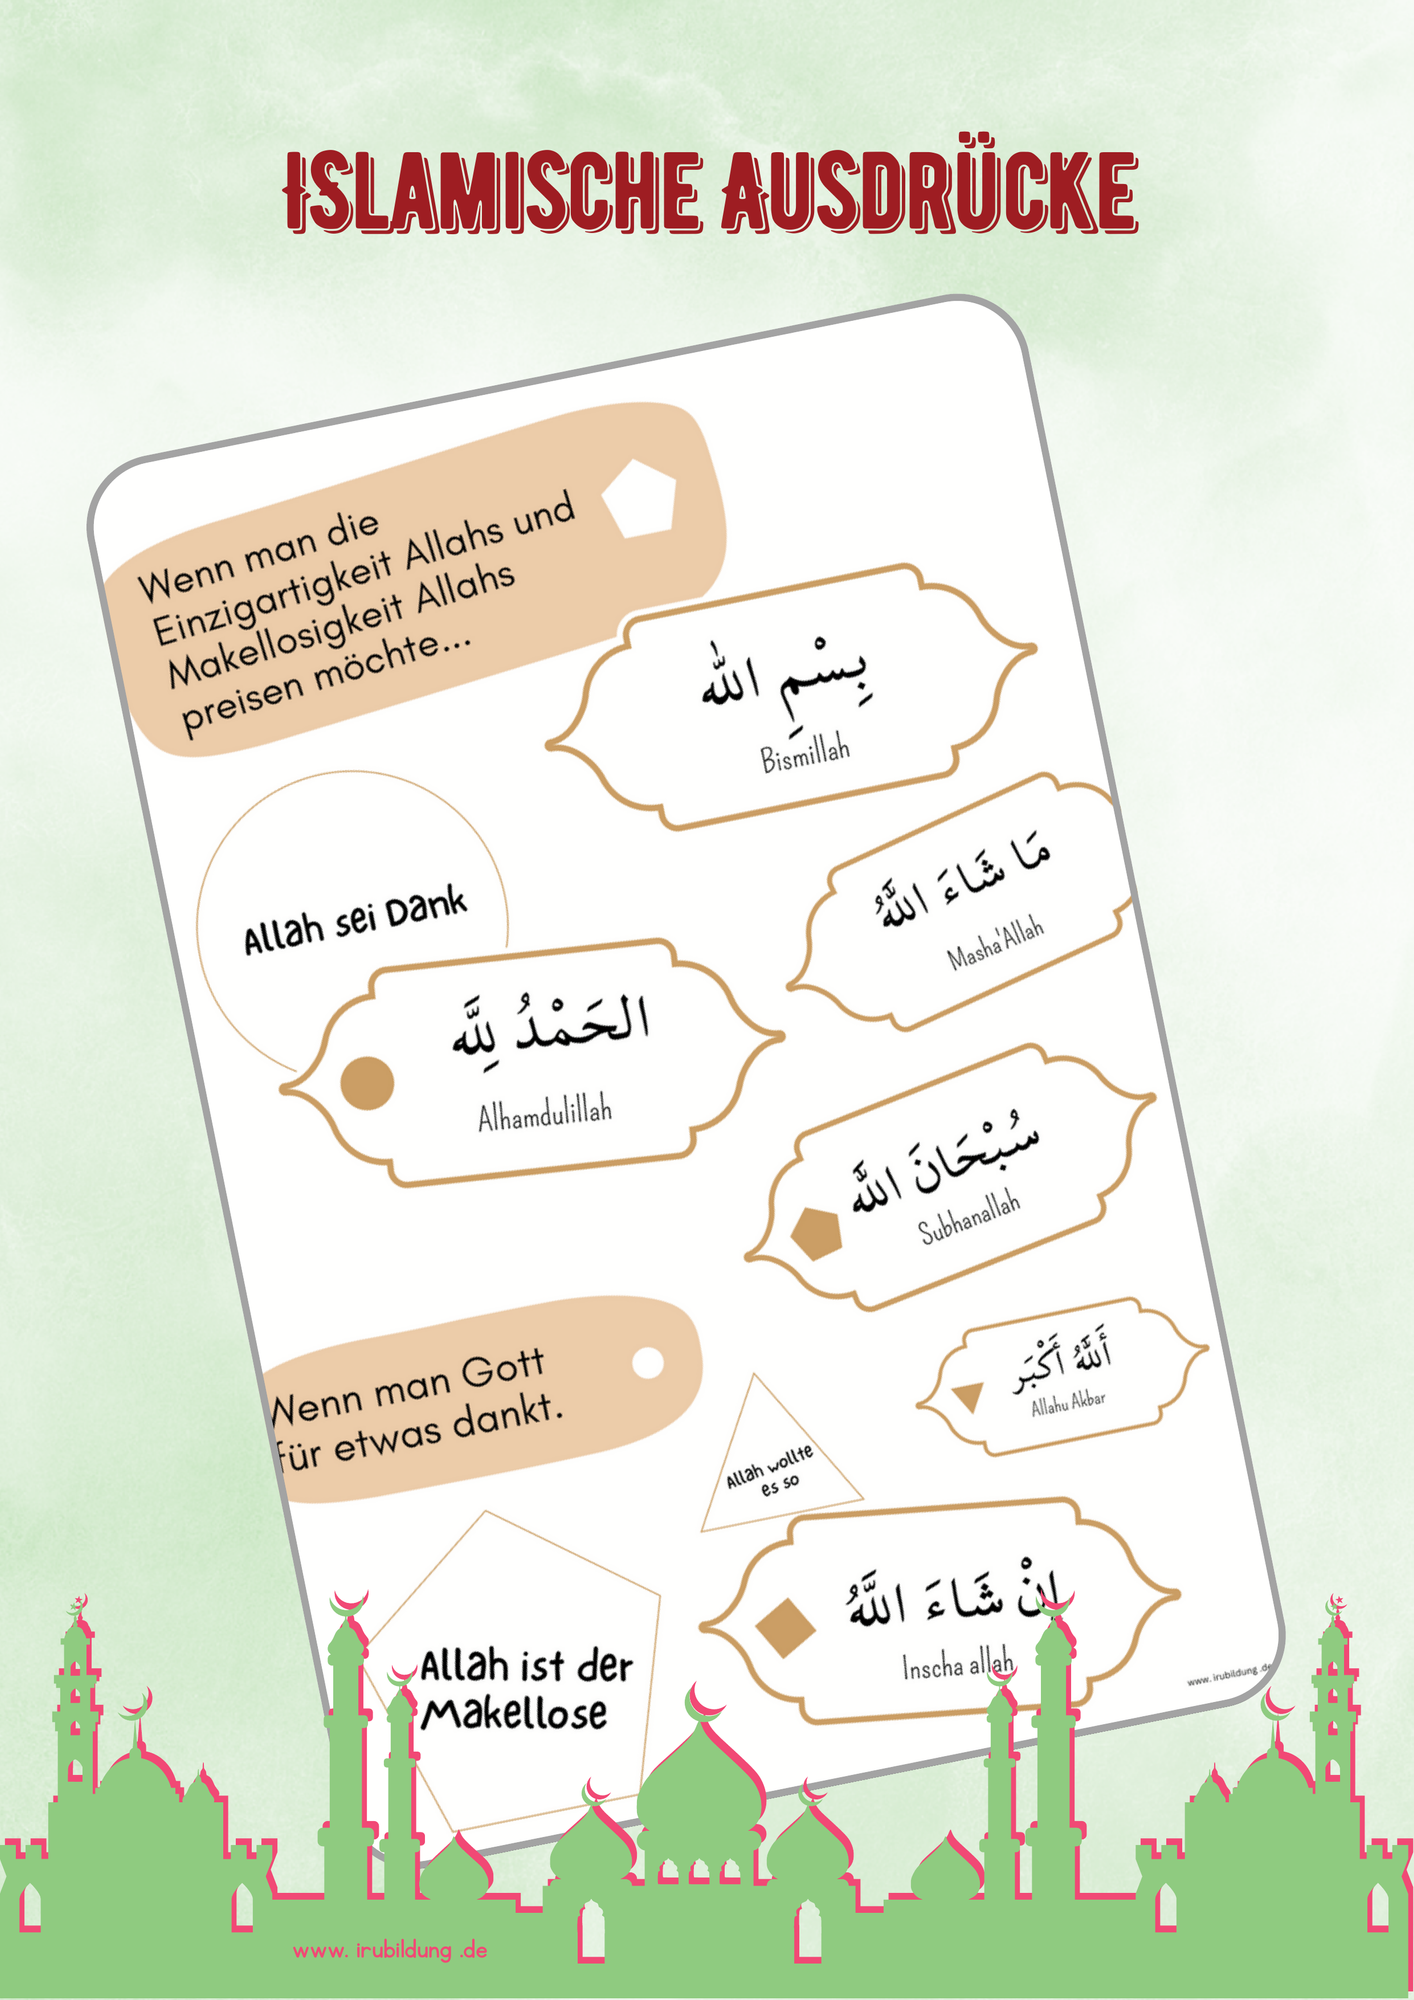 Islamische Ausdrücke
Wenn man die
Einzigartigkeit Allahs und
Makellosigkeit Allahs
preisen möchte...
بِسْمِ اللّٰه
Bismillah
Allah sei Dank
مَا شَاءَ اللَّهُ
Masha'Allah
الحَمْدُ لِلَّه
Alhamdulillah
سُبْحَانَ اللَّه
Subhanallah
Wenn man Gott
für etwas dankt.
أَللَّهُ أَكْبَر
Allahu Akbar
Allah wollte
es so
إِنْ شَاءَ اللَّهُ
Inscha allah
Allah ist der
Makellose
www. irubildung .de
www. irubildung .de